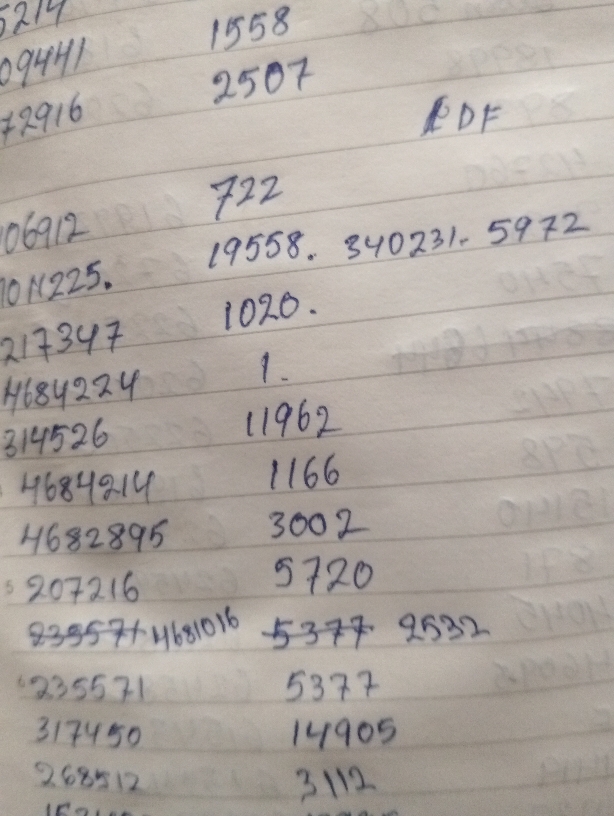 5214
09441 1558
72916 2507
PDF
06912 722
1011225. 19558. 340231. 5972
217347 1020.
4684224 1.
314526 11962
4684214 1166
4682895 3002
5 207216 5720
235571 4681016 5377 2532
6 235571 5377
317450 14905
268512 3112